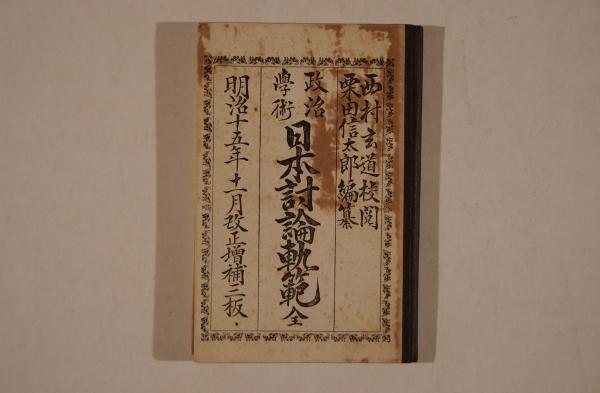 西村玄道校閲
栗田信太郎編纂
政治
學術
日本討論軌範 全
明治十五年十一月改正增補三板